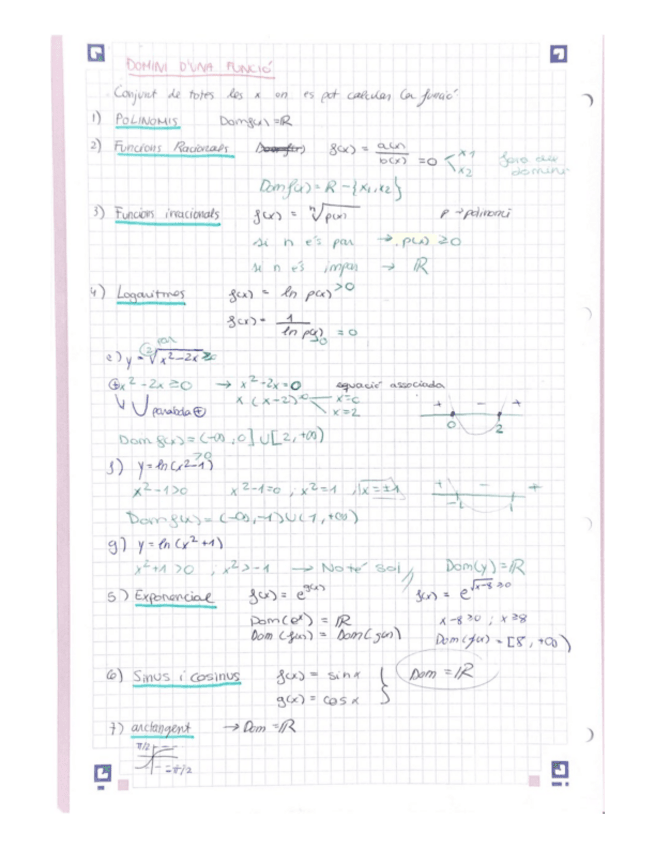 DOMINI D'UNA FUNCIÓ
Conjunt de totes les x on es pot calcular la funció
1) POLINOMIS Dom f(x) = ℝ
2) Funcions Racionals f(x) = a(x)/b(x) = 0 < x1 x2 fora del domini
Dom f(x) = ℝ - {x1, x2}
3) Funcions irracionals f(x) = ⁿ√p(x) p → polinomi
si n és par → p(x) ≥ 0
si n és impar → ℝ
4) Logaritmes f(x) = ln p(x) > 0
f(x) = 1/ln p(x) = 0
>0
par
e) y = ²√x²-2x ≥ 0
⊕x²-2x ≥ 0 → x²-2x=0 equació associada
x(x-2)=0 x=0 x=2
parabola ⊕
+ - +
0 2
Dom f(x) = (-∞, 0] ∪ [2, +∞)
f) y = ln(x²-1) >0
x²-1>0 x²-1=0 ; x²=1 , x=±1
+ - +
-1 1
Dom f(x) = (-∞, -1) ∪ (1, +∞)
g) y = ln(x²+1)
x²+1>0 , x²>-1 → No té sol, Dom(y) = ℝ
5) Exponencial f(x) = e^g(x) f(x) = e^√x-8 ≥0
Dom(eˣ) = ℝ x-8≥0 ; x≥8
Dom(f(x)) = Dom(g(x)) Dom(f(x)) = [8, +∞)
6) Sinus i cosinus f(x) = sin x } Dom = ℝ
g(x) = cos x
7) arctangent → Dom = ℝ
π/2
-π/2